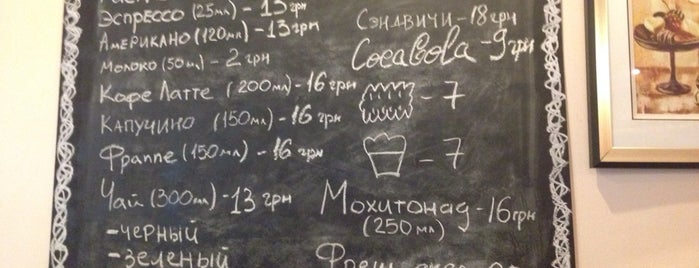 Эспрессо (25мл) - 13 грн
Американо (120мл) - 13 грн
Молоко (50мл) - 2 грн
Кофе Латте (200мл) - 16 грн
Капучино (150мл) - 16 грн
Фраппе (150мл) - 16 грн
Чай (300мл) - 13 грн
- черный
- зеленый
Сэндвичи - 18 грн
CocaCola - 9 грн
- 7
- 7
Мохитонад - 16 грн
(250 мл)
Фреш